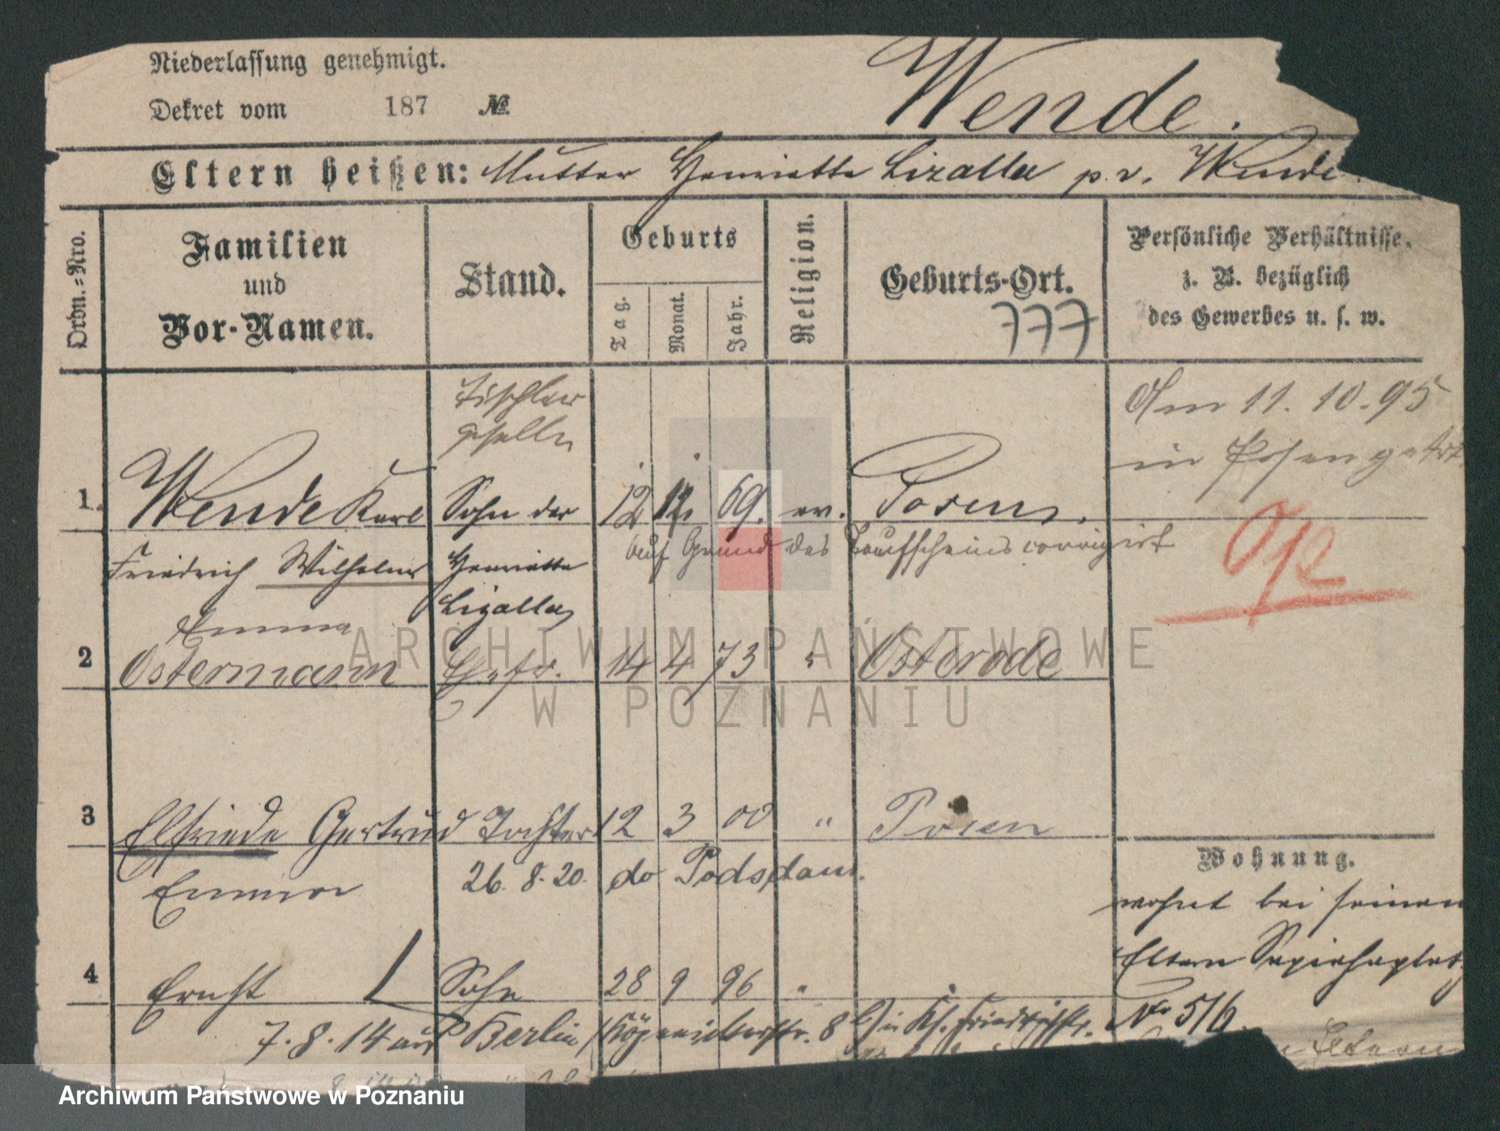 Niederlassung genehmigt.
Dekret vom 187 №
Wende.
Eltern heißen: Mutter Henriette Lizalla p. v. Wende.
Ordn.=Nro.
Familien
und
Vor-Namen.
Stand.
Geburts
Tag.
Monat.
Jahr.
Religion.
Geburts-Ort.
777
Persönliche Verhältnisse.
z. B. bezüglich
des Gewerbes u. s. w.
Tischler
geselle
Am 11. 10. 95
in Posen getr.
1. Wende Karl Sohn der 12 12. 69. ev. Posen.
Friedrich Wilhelm Henriette auf Grund des Taufscheins corrigirt
Lizalla
Emma
2 Ostermann Ehefr. 14 4 73 " Osterode
3 Elfriede Gertrud Tochter 12 3 00 " Posen
Emma 26. 8. 20. do Podsdam.
Wohnung.
wohnt bei seinen
Eltern Sapiehaplatz
No 5/6
4 Ernst Sohn 28 9 96 "
7. 8. 14 auf Berlin, Köpenickerstr. 8
ARCHIWUM PAŃSTWOWE
W POZNANIU
Archiwum Państwowe w Poznaniu